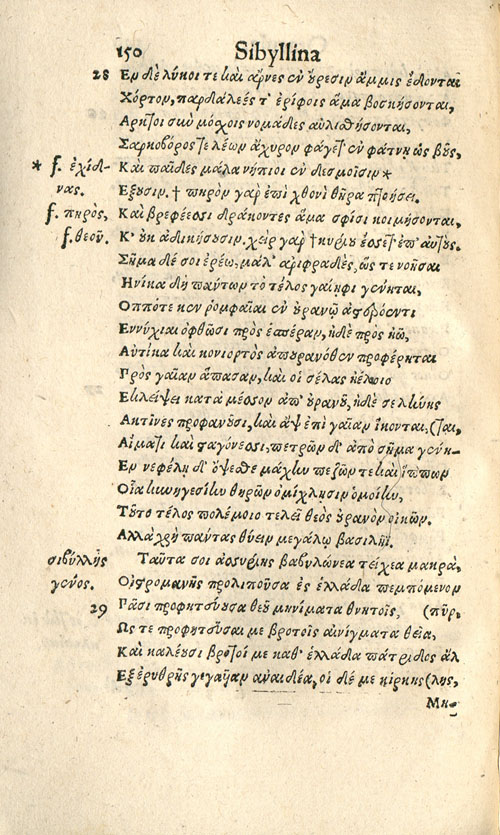 150 Sibyllina
28 Εν δὲ λύκοι τε καὶ ἄρνες ἐν ὔρεσιν ἄμμις ἔδονται
Χόρτον, παρδαλεές τ' ἐρίφοις ἅμα βοσκήσονται,
Αρκτοι σιὺ μόχοις νομάδες αὐλισθήσονται,
Σαρκοβόρος τε λέων ἄχυρον φάγετ' ἐν φάτνῃ ὡς βῦς,
* f. ἐχίδ- Καὶ παῖδες μάλα νήπιοι ἐν δεσμοῖσιν *
νας. Εξουσιν. † πηρὸν γὰρ ἐπὶ χθονὶ θῆρα ποιήσει.
f. πηρὸς, Καὶ βρεφέεσσι δράκοντες ἅμα σφίσι κοιμήσονται,
f. θεοῦ. Κ' ουκ ἀδικήσουσιν. χεὶρ γὰρ † κυρίου ἔσσετ' ἐπ' αὐτούς.
Σῆμα δέ σοι ἐρέω, μάλ' ἀριφραδὲς, ὥς τε νοῆσαι
Ηνίκα δὴ πάντων τὸ τέλος γαίηφι γένηται,
Οππότε κεν ῥομφαῖαι ἐν οὐρανῷ ἀστρόεντι
Εννύχιαι ὀφθῶσι πρὸς ἑσπέραν, ἠδὲ πρὸς ἠῶ,
Αὐτίκα καὶ κονιορτὸς ἀπ' οὐρανόθεν προφέρηται
Πρὸς γαῖαν ἅπασαν, καὶ οἱ σέλας ἠελίοιο
Εκλείψει κατὰ μέσσον ἀπ' οὐρανοῦ, ἠδὲ σελήνης
Ακτῖνες προφανοῦσι, καὶ ἂψ ἐπὶ γαῖαν ἵκονται, (ται,
Αἵματι καὶ σταγόνεσσι, πετρῶν δ' ἀπὸ σῆμα γένη-
Εν νεφέλῃ δ' ὄψεσθε μάχην πεζῶν τε καὶ ἵππων
Οἷα κυνηγεσίην θηρῶν ὀμίχλησιν ὁμοίην,
Τοῦτο τέλος πολέμοιο τελεῖ θεὸς οὐρανὸν οἰκῶν.
Αλλὰ χρὴ πάντας θύειν μεγάλῳ βασιλῆϊ.
σιβύλλης Ταῦτα σοι ἀσσυρίης βαβυλώνεα τείχεα μακρὰ,
γένος. Οἰστρομανὴς προλιποῦσα ἐς ἑλλάδα πεμπόμενον
29 Πᾶσι προφητεύουσα θεοῦ μηνίματα θνητοῖς, (πῦρ,
Ως τε προφητεῦσαι με βροτοῖς αἰνίγματα θεῖα,
Καὶ καλέουσι βροτοί με καθ' ἑλλάδα πάτριδος ἄλ
Εξ ἐρυθρῆς γεγαῦαν ἀναιδέα, οἱ δέ με κίρκης (λης,
Μη-